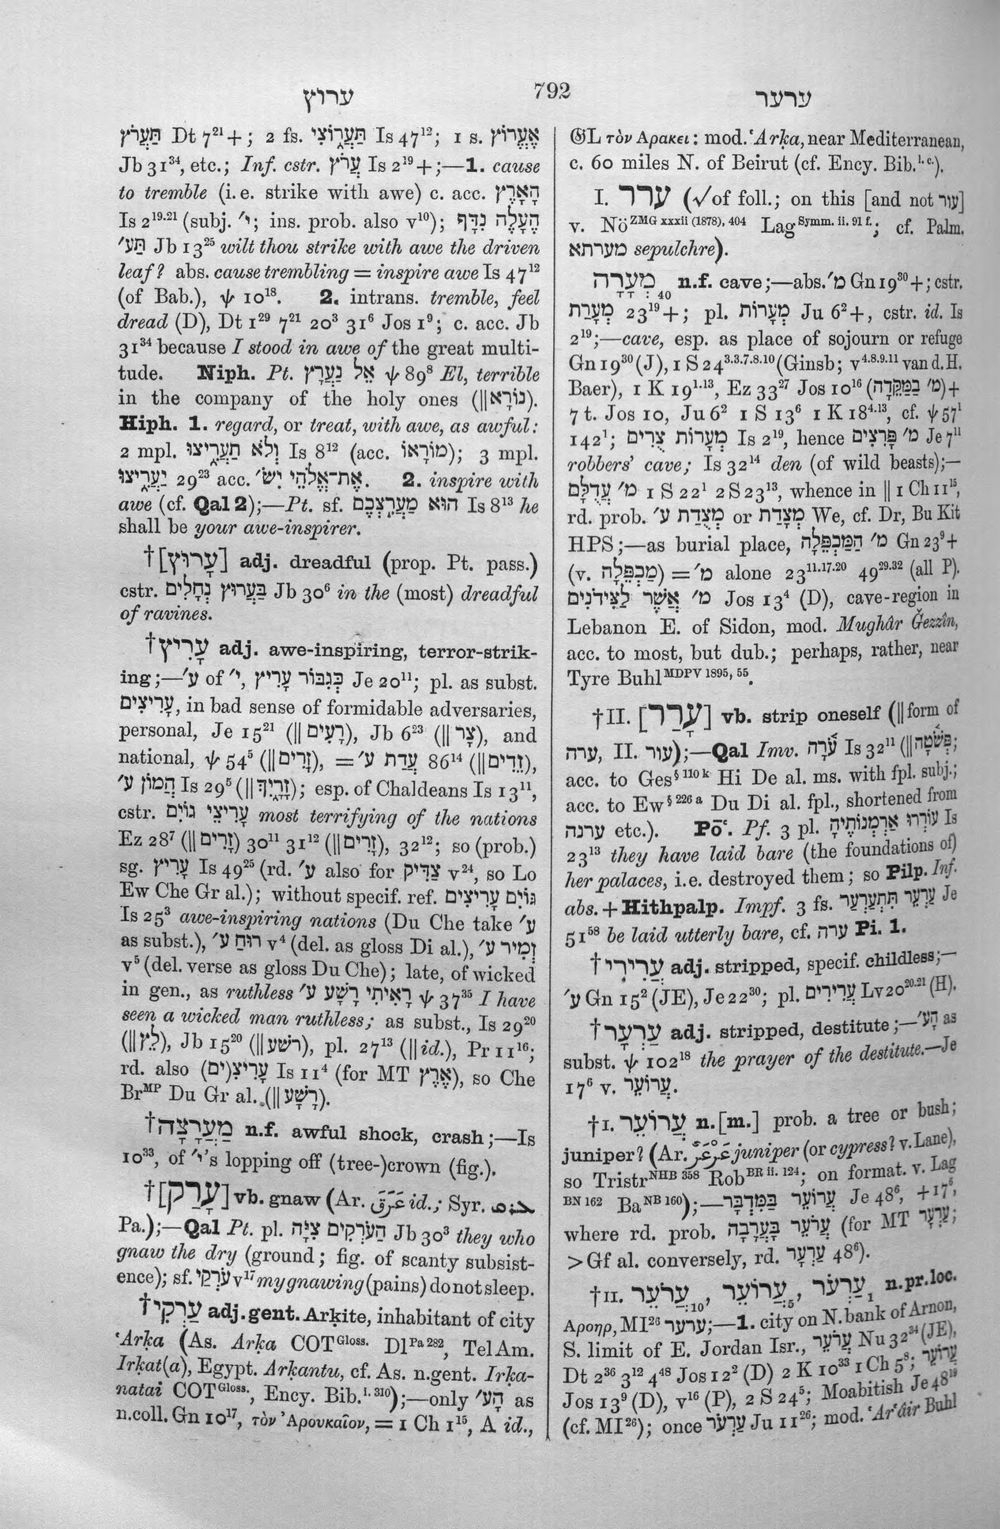 ערוץ
792
ערער
תַּעֲרֹץ Dt 7²¹ + ; 2 fs. תַּעֲרוֹצִי Is 47¹²; 1 s. אֶעֱרוֹץ
Jb 31³⁴, etc.; Inf. cstr. עֲרֹץ Is 2¹⁹ + ;—1. cause
to tremble (i.e. strike with awe) c. acc. הָאָרֶץ
Is 2¹⁹·²¹ (subj. י׳; ins. prob. also v¹⁰); הֶעָלֶה נִדָּף
תַּע׳ Jb 13²⁵ wilt thou strike with awe the driven
leaf? abs. cause trembling = inspire awe Is 47¹²
(of Bab.), ψ 10¹⁸. 2. intrans. tremble, feel
dread (D), Dt 1²⁹ 7²¹ 20³ 31⁶ Jos 1⁹; c. acc. Jb
31³⁴ because I stood in awe of the great multi-
tude. Niph. Pt. אֵל נַעֲרָץ ψ 89⁸ El, terrible
in the company of the holy ones (|| נוֹרָא).
Hiph. 1. regard, or treat, with awe, as awful:
2 mpl. וְלֹא תַעֲרִיצוּ Is 8¹² (acc. מוֹרָאוֹ); 3 mpl.
יַעֲרִיצוּ 29²³ acc. אֶת־אֱלֹהֵי יִשׂ׳. 2. inspire with
awe (cf. Qal 2);—Pt. sf. הוּא מַעֲרִצְכֶם Is 8¹³ he
shall be your awe-inspirer.
†[עָרוּץ] adj. dreadful (prop. Pt. pass.)
cstr. בַּעֲרוּץ נְחָלִים Jb 30⁶ in the (most) dreadful
of ravines.
†עָרִיץ adj. awe-inspiring, terror-strik-
ing;—ע׳ of י׳, כְּגִבּוֹר עָרִיץ Je 20¹¹; pl. as subst.
עָרִיצִים, in bad sense of formidable adversaries,
personal, Je 15²¹ (|| רָעִים), Jb 6²³ (|| צָר), and
national, ψ 54⁵ (|| זָרִים), = עֲדַת ע׳ 86¹⁴ (|| זֵדִים),
הֲמוֹן ע׳ Is 29⁵ (|| זָרָיִךְ); esp. of Chaldeans Is 13¹¹,
cstr. עָרִיצֵי גוֹיִם most terrifying of the nations
Ez 28⁷ (|| זָרִים) 30¹¹ 31¹² (|| זָרִים), 32¹²; so (prob.)
sg. עָרִיץ Is 49²⁵ (rd. ע׳ also for צַדִּיק v²⁴, so Lo
Ew Che Gr al.); without specif. ref. גּוֹיִם עָרִיצִים
Is 25³ awe-inspiring nations (Du Che take ע׳
as subst.), רוּחַ ע׳ v⁴ (del. as gloss Di al.), זְמִיר ע׳
v⁵ (del. verse as gloss Du Che); late, of wicked
in gen., as ruthless רָאִיתִי רָשָׁע ע׳ ψ 37³⁵ I have
seen a wicked man ruthless; as subst., Is 29²⁰
(|| לֵץ), Jb 15²⁰ (|| רשׁע), pl. 27¹³ (|| id.), Pr 11¹⁶;
rd. also עָרִיץ(ים) Is 11⁴ (for MT אֶרֶץ), so Che
Brᴹᴾ Du Gr al. (|| רָשָׁע).
†מַעֲרָצָה n.f. awful shock, crash;—Is
10³³, of י׳'s lopping off (tree-)crown (fig.).
†[עָרַק] vb. gnaw (Ar. عَرَقَ id.; Syr. ܥܪܩ
Pa.);—Qal Pt. pl. הַעֹרְקִים צִיָּה Jb 30³ they who
gnaw the dry (ground; fig. of scanty subsist-
ence); sf. עֹרְקַי v¹⁷ my gnawing (pains) do not sleep.
†עַרְקִי adj.gent. Arḳite, inhabitant of city
ʻArḳa (As. Arḳa COTᴳˡᵒˢˢ· Dlᴾᵃ ²⁸², TelAm.
Irḳat(a), Egypt. Arḳantu, cf. As. n.gent. Irḳa-
natai COTᴳˡᵒˢˢ·, Ency. Bib.ᴵ· ³¹⁰);—only הָע׳ as
n.coll. Gn 10¹⁷, τὸν Ἀρουκαῖον, = 1 Ch 1¹⁵, A id.,
𝔊L τὸν Αρακει: mod. ʻArḳa, near Mediterranean,
c. 60 miles N. of Beirut (cf. Ency. Bib.ˡ·ᶜ·).
I. ערר (√ of foll.; on this [and not עור]
v. Nöᶻᴹᴳ ˣˣˣⁱⁱ ⁽¹⁸⁷⁸⁾, ⁴⁰⁴ Lagˢʸᵐᵐ· ⁱⁱ· ⁹¹ ᶠ·; cf. Palm.
מערתא sepulchre).
מְעָרָה₄₀ n.f. cave;—abs. מ׳ Gn 19³⁰ + ; cstr.
מְעָרַת 23¹⁹ + ; pl. מְעָרוֹת Ju 6² +, cstr. id. Is
2¹⁹;—cave, esp. as place of sojourn or refuge
Gn 19³⁰ (J), 1 S 24³·³·⁷·⁸·¹⁰ (Ginsb; v⁴·⁸·⁹·¹¹ van d. H.
Baer), 1 K 19¹·¹³, Ez 33²⁷ Jos 10¹⁶ (מ׳ בְּמַקֵּדָה) +
7 t. Jos 10, Ju 6² 1 S 13⁶ 1 K 18⁴·¹³, cf. ψ 57¹
142¹; מְעָרוֹת צֻרִים Is 2¹⁹, hence מ׳ פָּרִצִים Je 7¹¹
robbers' cave; Is 32¹⁴ den (of wild beasts);—
מ׳ עֲדֻלָּם 1 S 22¹ 2 S 23¹³, whence in || 1 Ch 11¹⁵,
rd. prob. מְצֻדַת ע׳ or מְצָדַת We, cf. Dr, Bu Kit
HPS;—as burial place, מ׳ הַמַּכְפֵּלָה Gn 23⁹ +
(v. מַכְפֵּלָה) = מ׳ alone 23¹¹·¹⁷·²⁰ 49²⁹·³² (all P).
מ׳ אֲשֶׁר לַצִּידֹנִים Jos 13⁴ (D), cave-region in
Lebanon E. of Sidon, mod. Mughâr Ǧezzîn,
acc. to most, but dub.; perhaps, rather, near
Tyre Buhlᴹᴰᴾⱽ ¹⁸⁹⁵, ⁵⁵.
†II. [עָרַר] vb. strip oneself (|| form of
ערה, II. עור);—Qal Imv. עֹרָה Is 32¹¹ (|| פְּשֹׁטָה;
acc. to Ges§ ¹¹⁰ ᵏ Hi De al. ms. with fpl. subj.;
acc. to Ew§ ²²⁶ ᵃ Du Di al. fpl., shortened from
ערנה etc.). Pōʻ. Pf. 3 pl. עוֹרְרוּ אַרְמְנוֹתֶיהָ Is
23¹³ they have laid bare (the foundations of)
her palaces, i.e. destroyed them; so Pilp. Inf.
abs. + Hithpalp. Impf. 3 fs. עַרְעֵר תִּתְעַרְעָר Je
51⁵⁸ be laid utterly bare, cf. ערה Pi. 1.
†עֲרִירִי adj. stripped, specif. childless;—
ע׳ Gn 15² (JE), Je 22³⁰; pl. עֲרִירִים Lv 20²⁰·²¹ (H).
†עַרְעָר adj. stripped, destitute;—הָע׳ as
subst. ψ 102¹⁸ the prayer of the destitute.—Je
17⁶ v. עֲרוֹעֵר.
†I. עֲרוֹעֵר n.[m.] prob. a tree or bush;
juniper? (Ar. عَرْعَر juniper (or cypress? v. Lane),
so Tristrᴺᴴᴮ ³⁵⁸ Robᴮᴿ ⁱⁱ· ¹²⁴; on format. v. Lag
ᴮᴺ ¹⁶² Baᴺᴮ ¹⁶⁰);—עֲרוֹעֵר בַּמִּדְבָּר Je 48⁶, + 17⁶,
where rd. prob. עֲרֹעֵר בָּעֲרָבָה (for MT עַרְעָר;
> Gf al. conversely, rd. עַרְעָר 48⁶).
†II. עֲרֹעֵר₁₀, עֲרוֹעֵר₅, עַרְעֹר₁ n.pr.loc.
Αροηρ, MI²⁶ ערער;—1. city on N. bank of Arnon,
S. limit of E. Jordan Isr., עֲרֹעֵר Nu 32³⁴ (JE),
Dt 2³⁶ 3¹² 4⁴⁸ Jos 12² (D) 2 K 10³³ 1 Ch 5⁸; עֲרוֹעֵר
Jos 13⁹ (D), v¹⁶ (P), 2 S 24⁵; Moabitish Je 48¹⁹
(cf. MI²⁶); once עַרְעֹר Ju 11²⁶; mod. ʻArʻâir Buhl